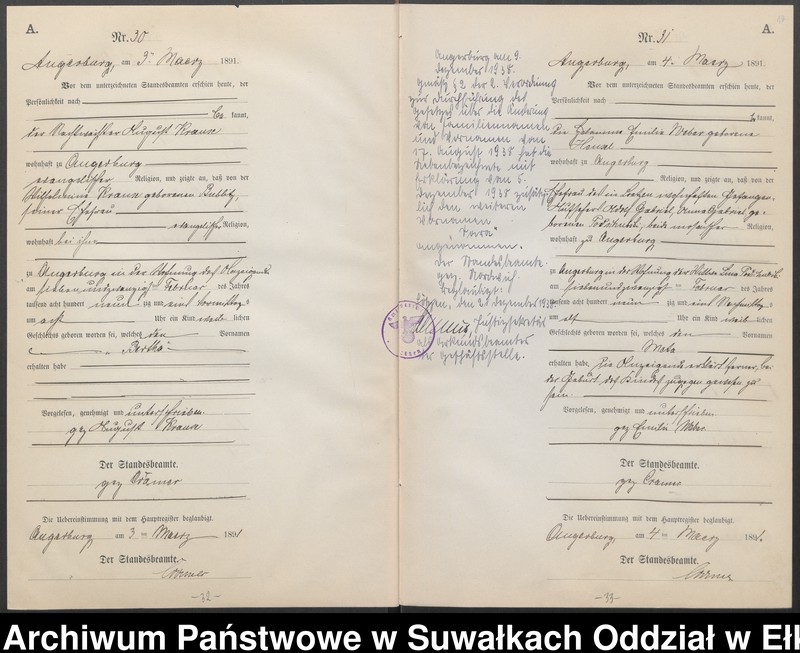 A.
Nr. 30
Angerburg, am 3ten Maerz 1891.
Vor dem unterzeichneten Standesbeamten erschien heute, der
Persönlichkeit nach
kannt,
der Nachtwächter August Krause
wohnhaft zu Angerburg
evangelischer Religion, und zeigte an, daß von der
Wilhelmine Krause geborenen
seiner Ehefrau
evangelischer Religion,
wohnhaft bei ihm
zu Angerburg in der Wohnung des Anzeigenden
am siebenundzwanzigsten Februar des Jahres
tausend acht hundert neunzig und ein Vormittags
um acht Uhr ein Kind weiblichen
Geschlechts geboren worden sei, welches den Vornamen
Bertha
erhalten habe
Vorgelesen, genehmigt und unterschrieben.
gez August Krause
Der Standesbeamte.
gez Crämer
Die Uebereinstimmung mit dem Hauptregister beglaubigt.
Angerburg am 3ten Maerz 1891
Der Standesbeamte.
-32-
Angerburg am 9.
Dezember 1938.
Gemäß § 2 der 2. Verordnung
zur Durchführung des
Gesetzes über die Änderung
von Familiennamen
und Vornamen vom
17. August 1938 hat die
Nebenbezeichnete mit
Erklärung vom 5.
Dezember 1938 zusätz-
lich den weiteren
Vornamen
"Sara"
angenommen.
Der Standesbeamte
gez.
Beglaubigt:
Lötzen, den 21 Dezember 1938
Justizsekretär
als Urkundsbeamter
der Geschäftsstelle.
A.
Nr. 31
Angerburg, am 4ten Maerz 1891
Vor dem unterzeichneten Standesbeamten erschien heute, der
Persönlichkeit nach
kannt,
die Hebamme Emilie Weber geborene
wohnhaft zu Angerburg
Religion, und zeigte an, daß von der
Ehefrau des in Lötzen wohnhaften Gefangen-
Aufseher Adolf Gabriel, Anna Gabriel ge-
borenen beide mosaischer Religion,
wohnhaft zu Angerburg
zu Angerburg in der Wohnung der
am siebenundzwanzigsten Februar des Jahres
tausend acht hundert neunzig und ein Nachmittags
um elf Uhr ein Kind weiblichen
Geschlechts geboren worden sei, welches den Vornamen
Meta
erhalten habe. Die Anzeigende erklärt ferner, bei
der Geburt des Kindes zugegen gewesen zu
sein.
Vorgelesen, genehmigt und unterschrieben
gez Emilie Weber
Der Standesbeamte.
gez Crämer
Die Uebereinstimmung mit dem Hauptregister beglaubigt.
Angerburg, am 4ten Maerz 1891.
Der Standesbeamte.
-33-
Archiwum Państwowe w Suwałkach Oddział w Ełk